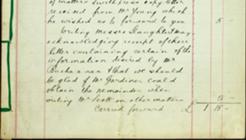 of matters with press copy letter
received from Mr Young which
he wished us to forward to you 5 -
Writing Messrs
acknowledging receipt of those
letter containing certain of the
information desired by Mr
Buchanan & that we should
be glad if Mr Gardiner could
obtain the remainder when
writing Mr Scott on other matters 5 -
Carried forward £ 1 15 -